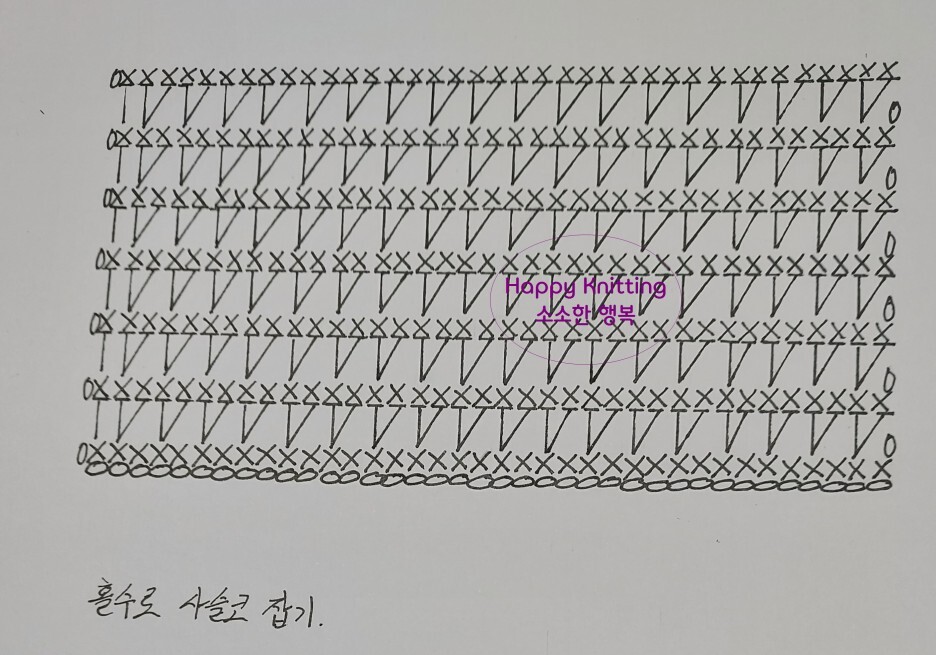 Happy Knitting
소소한 행복
홀수로 사슬코 잡기.